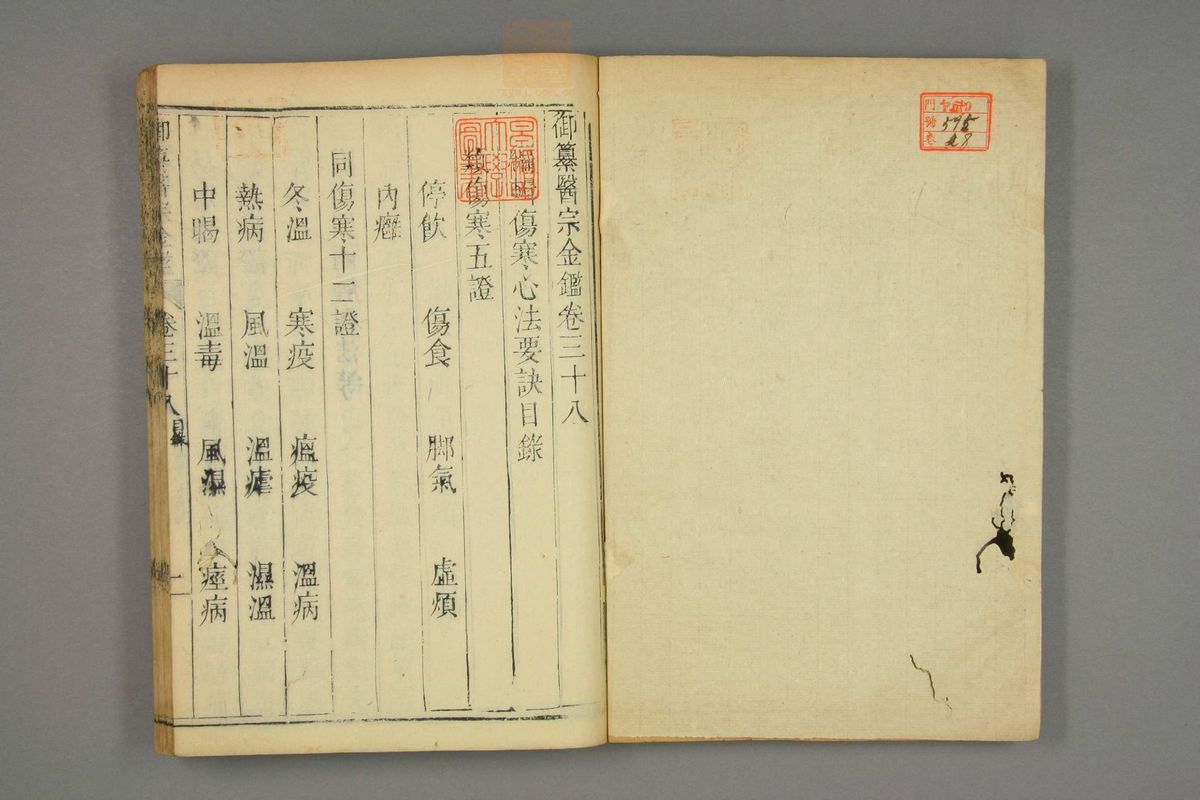 御纂醫宗金鑑卷三十八
傷寒心法要訣目錄
類傷寒五證
停飲 傷食 脚氣 虛煩
內癰
同傷寒十二證
冬溫 寒疫 瘟疫 溫病
熱病 風溫 溫瘧 濕溫
中暍 溫毒 風濕 痙病
卷三十八
目錄
一
門
號 595
卷 28